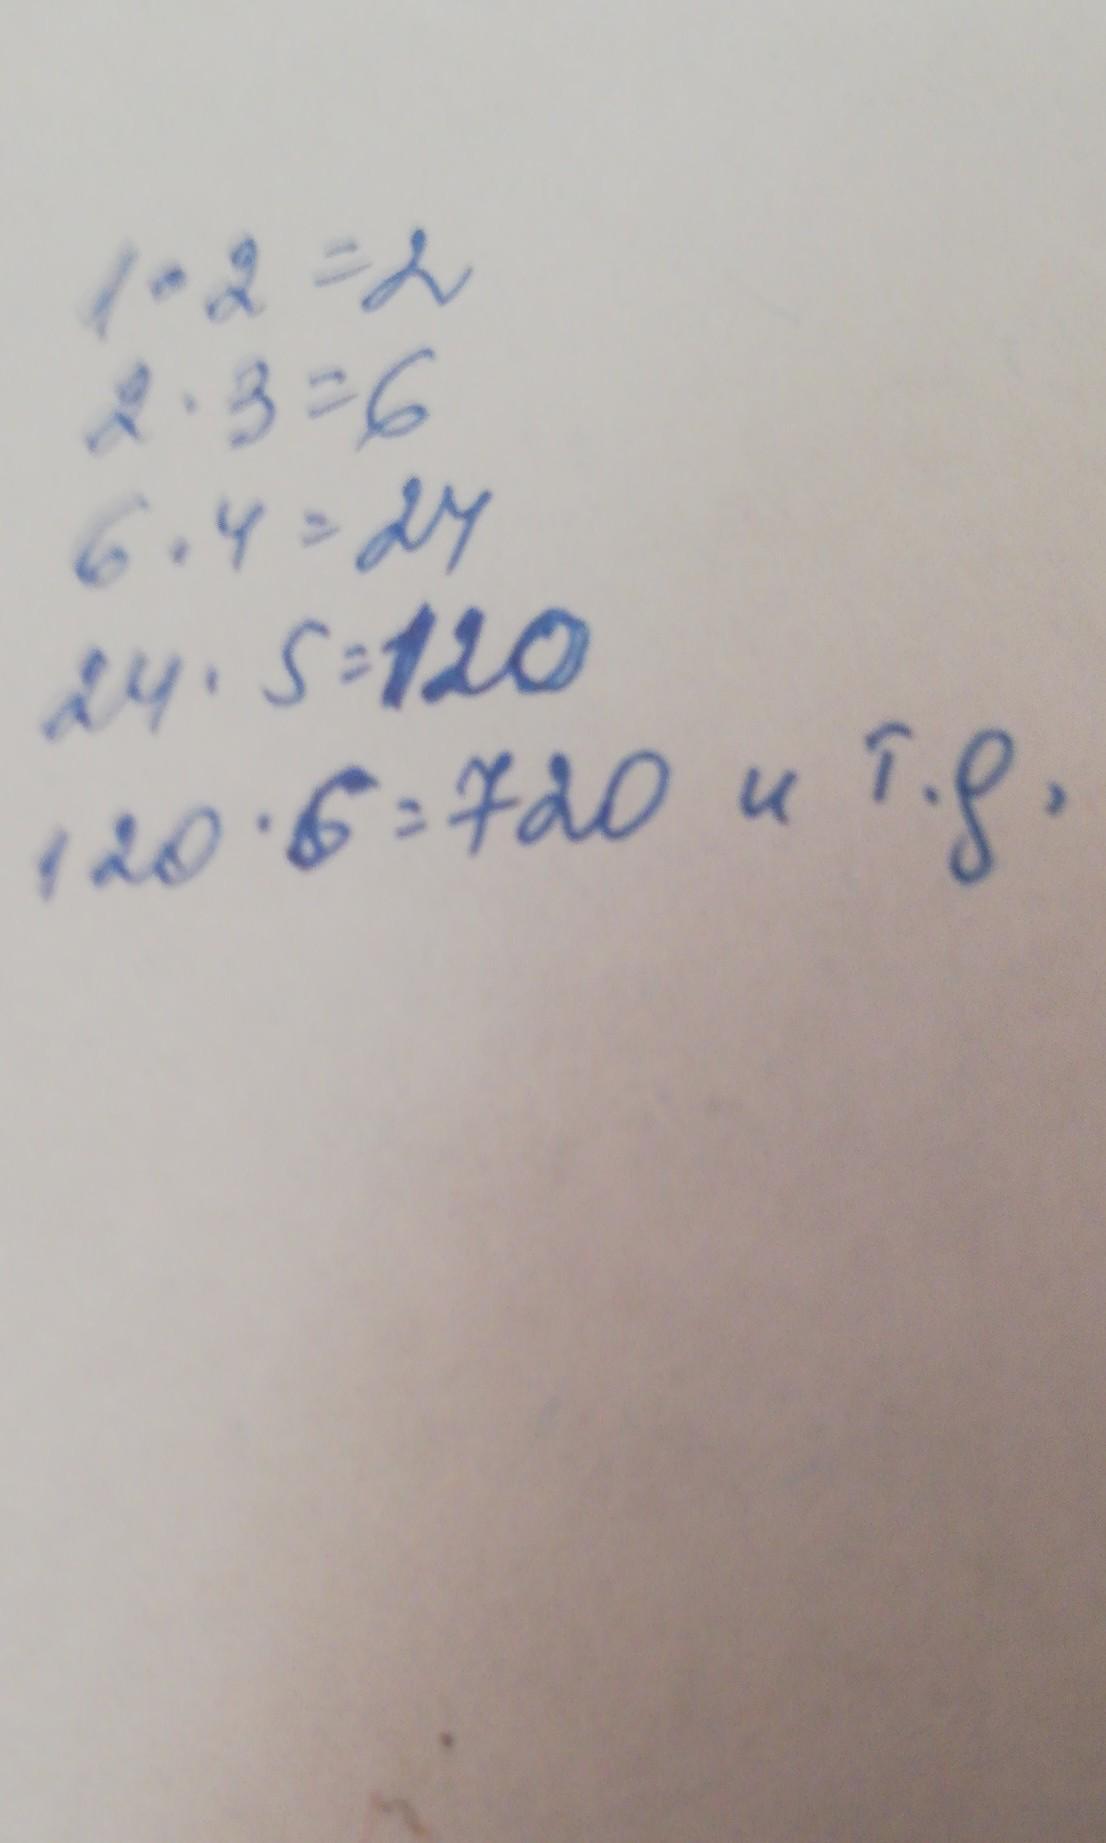 1·2=2
2·3=6
6·4=24
24·5=120
120·6=720 и т.д.